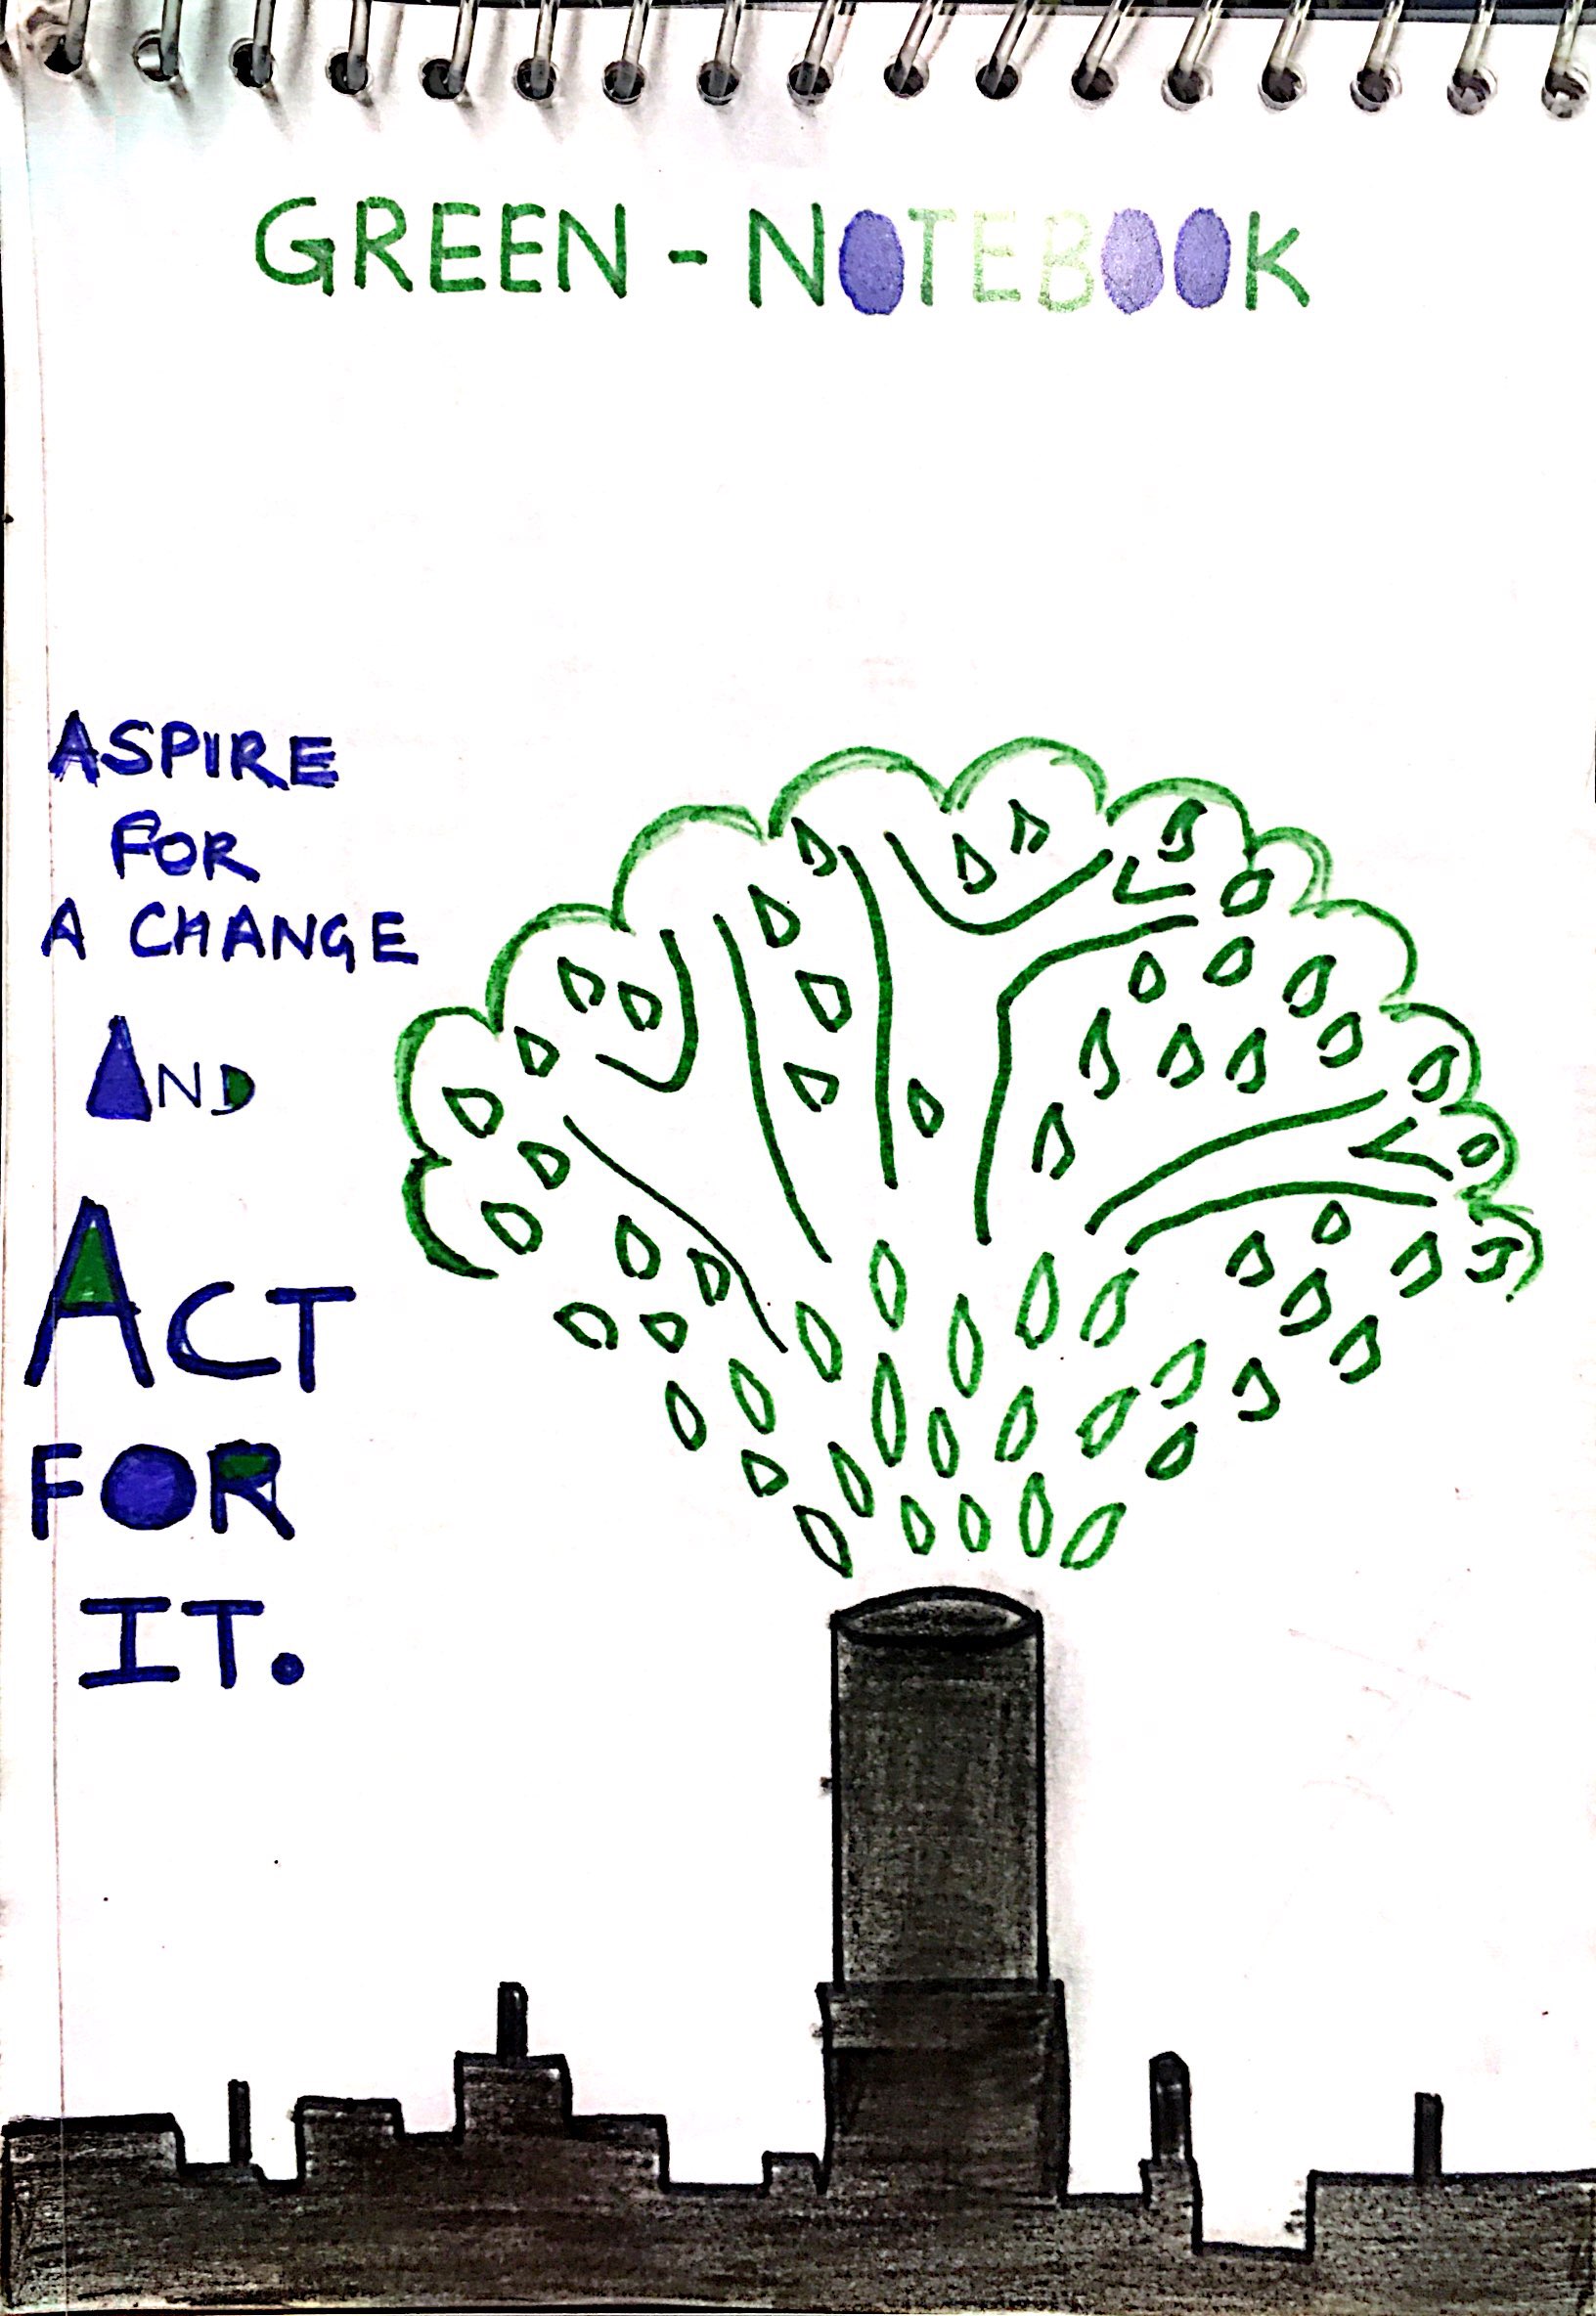 GREEN - NOTEBOOK
ASPIRE
FOR
A CHANGE
AND
ACT
FOR
IT.